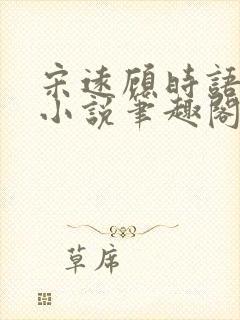 宋遠顧時語
小說筆趣閣
草席